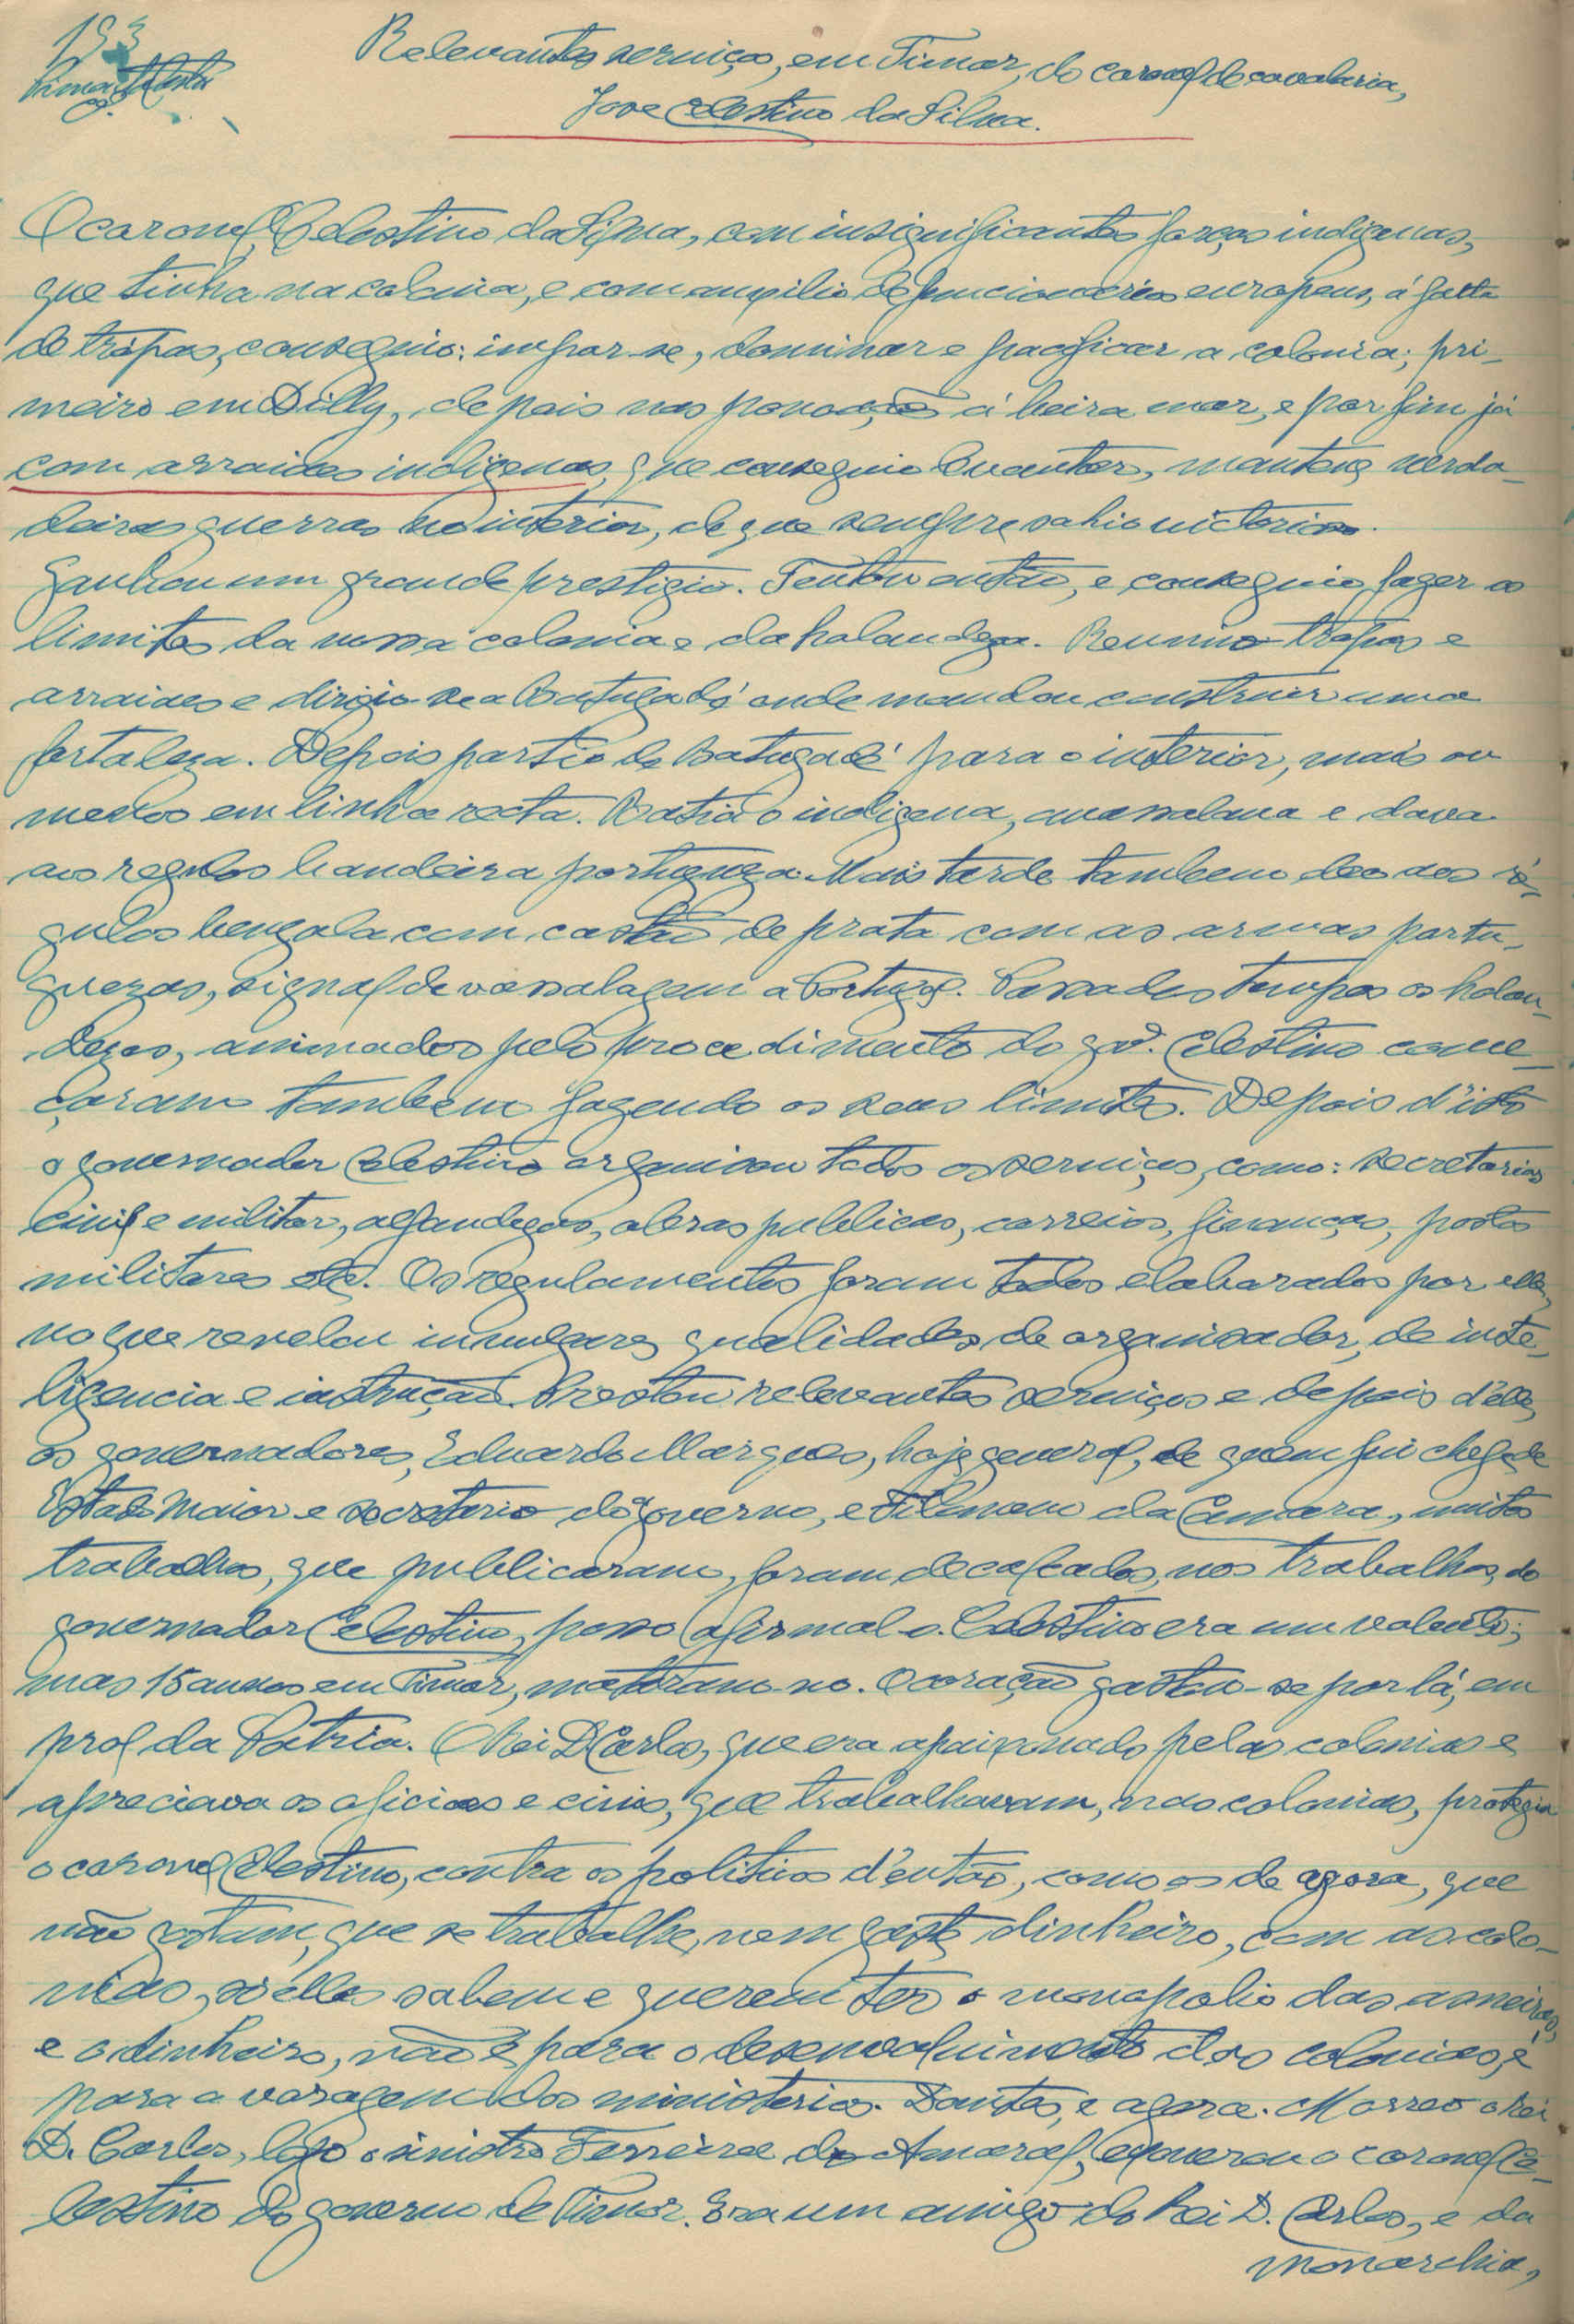 193
Relevantes serviços, em Timor, do coronel de cavalaria,
José Celestino da Silva.
O coronel Celestino da Silva, com insignificantes forças indigenas,
que tinha na colonia, e com auxilio de funcionarios europeus, á falta
de tropas, conseguio: impor-se, dominar e pacificar a colonia; pri-
meiro em Dilly, depois nas povoações á beira mar, e por fim já
com arraiaes indigenas, que conseguio levantar, manteve verda-
deiras guerras no interior, de que sempre sahio victorioso.
Ganhou um grande prestigio. Tentou então, e conseguio fazer os
limites da nossa colonia e da holandeza. Reunio tropas e
arraiaes e dirigio-se a Batugadé onde mandou construir uma
fortaleza. Depois partio de Batugadé para o interior, mais ou
menos em linha recta. Batia o indigena, avassalava e dava
aos regulos bandeira portugueza. Mais tarde tambem deo aos ré-
gulos bengala com castão de prata com as armas portu-
guezas, signal de vassalagem a Portugal. Passados tempos os holan-
dezes, animados pelo procedimento do gov. Celestino come-
çaram tambem fazendo os seus limites. Depois d'isto
o governador Celestino organisou todos os serviços, como: secretarias
civil e militar, alfandegas, obras publicas, correios, finanças, postos
militares etc. Os regulamentos foram todos elaborados por elle,
no que revelou invulgares qualidades de organisador, de inte-
ligencia e instrução. Prestou relevantes serviços e depois d'elle,
os governadores, Eduardo Marques, hoje general, de quem fui chefe de
Estado Maior e secretario do governo, e Filomeno da Camara, muitos
trabalhos, que publicaram, foram decalcados, nos trabalhos, do
governador Celestino, posso afirmal-o. Celestino era um valente;
mas 15 annos em Timor, mataram-no. O coração gastou-se por lá, em
prol da Patria. O Rei D. Carlos, que era apaixonado pelas colonias e
apreciava os oficiaes e civis, que trabalhavam, nas colonias, protegia
o coronel Celestino, contra os politicos d'então, como os de agora, que
não gostam, que se trabalhe, nem gaste dinheiro, com as colo-
nias, só elles sabem e querem ter o monopolio das asneiras,
e o dinheiro, não é para o desenvolvimento das colonias, é
para a voragem dos ministerios. Dantes, e agora. Morreo o Rei
D. Carlos, logo o ministro Ferreira do Amaral, exoneraro o coronel Ce-
lestino do governo de Timor. Era um amigo do Rei D. Carlos, e da
monarchia,